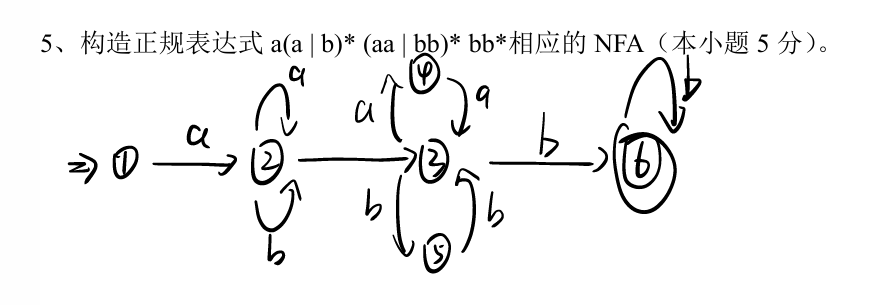 5、构造正规表达式 a(a | b)* (aa | bb)* bb*相应的 NFA（本小题 5 分）。
a 4 b
a a
⇒ 1 a 2 3 b 6
b b
b 5